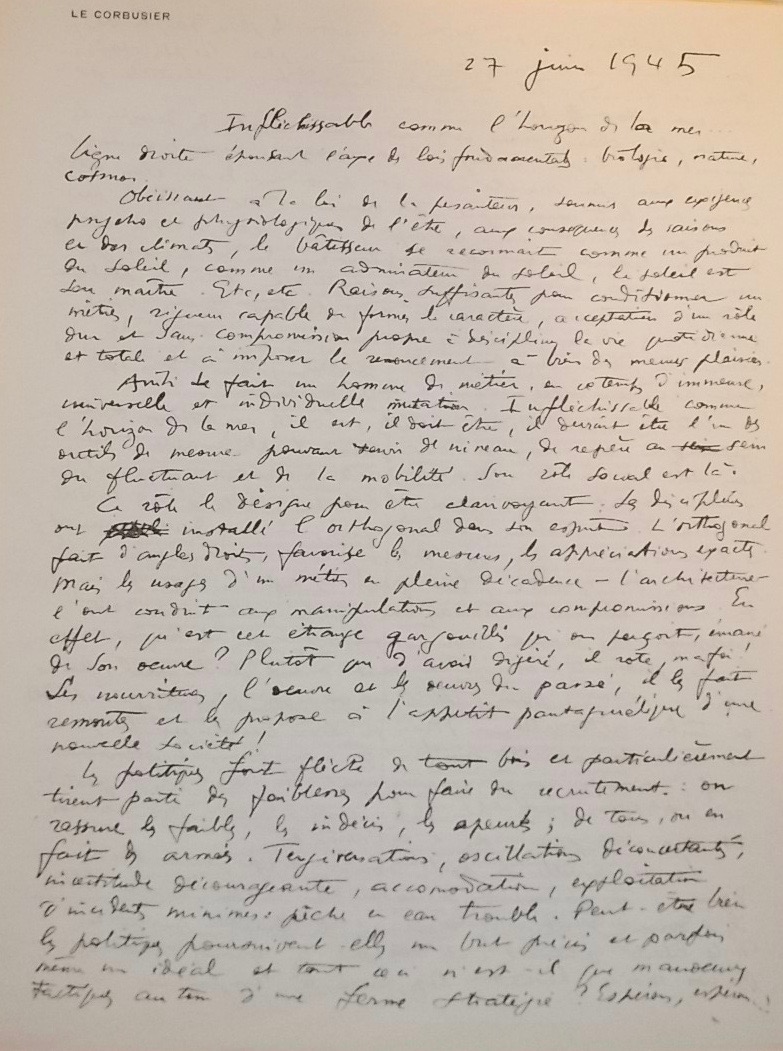 LE CORBUSIER
27 juin 1945
Infléchissable comme l'horizon de la mer
ligne droite épousant l'axe des lois fondamentales : biologie, nature,
cosmos.
Obéissant à la loi de la pesanteur, soumis aux exigences
psycho et physiologiques de l'être, aux conséquences des saisons
et des climats, le bâtisseur se reconnaît comme un produit
du soleil, comme un admirateur du soleil, le soleil est
son maître. Etc, etc. Raisons suffisantes pour conditionner un
métier, rigueur capable de former le caractère, acceptation d'un rôle
dur et sans compromission propre à discipliner la vie quotidienne
et totale et à imposer le renoncement à bien des menus plaisirs.
Ainsi se fait un homme de métier, en d'immense,
universelle et individuelle mutation. Infléchissable comme
l'horizon de la mer, il est, il doit être, il devrait être l'un des
outils de mesure pouvant servir de niveau, de repère au sein
du fluctuant et de la mobilité. Son rôle social est là.
Ce rôle le désigne pour être clairvoyant. Les disciplines
ont installé l'orthogonal dans son esprit. L'orthogonal
fait d'angles droits, favorise les mesures, les appréciations exactes.
Mais les usages d'un métier en pleine décadence – l'architecture –
l'ont conduit aux manipulations et aux compromissions. En
effet, qu'est cet étrange gargouillis que on perçoit, émané
de son oeuvre ? Plutôt que d'avoir digéré, il rote, ma foi !
Ses nourritures, l'oeuvre et les oeuvres du passé, il les fait
remonter et les propose à l'appétit pantagruélique d'une
nouvelle société !
Les politiques font flèche de tout bois et particulièrement
tirent parti des faiblesses pour faire du recrutement : on
rassure les faibles, les indécis, les apeurés ; de tous, on en
fait des armées. Tergiversations, oscillations déconcertantes,
incertitude décourageante, accomodation, exploitation
d'incidents minimes : pêche en eau trouble. Peut-être bien
les politiques poursuivent-elles un but précis et parfois
même un idéal et tout ceci n'est-il que manoeuvres
tactiques au ton d'une ferme stratégie ? Espérons, espérons...